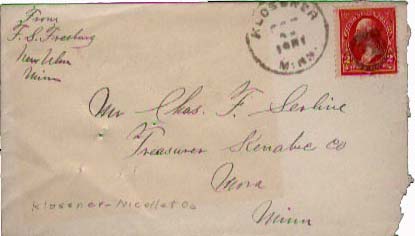 From
F. S. Freeburg
New Ulm
Minn
KLOSSNER
MINN.
Mr Chas. F. Serline
Treasurer Kenabec Co
Mora
Minn
Klossner-Nicollet Co